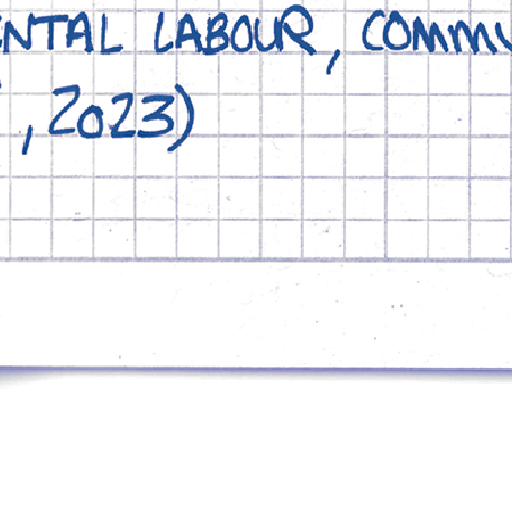 ENTAL LABOUR, COMMU
, 2023)